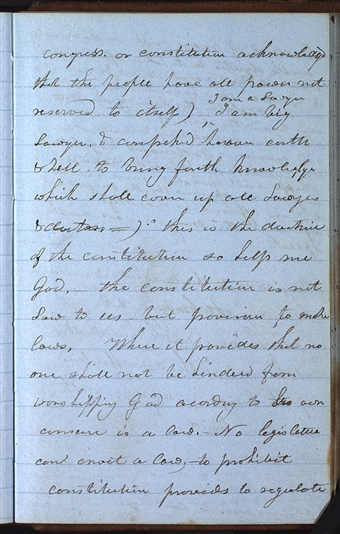 congress. or constitution acknowledged
that the people have all power not
I am a Lawyer
reserved to itself) I am big
Lawyer. & comprehend heaven earth
& hell. to bring forth knowledge
which shall cover up all Lawyers
& doctors =) this is the doctrine
of the constitution so help me
God.— the constitution is not
Law to us but provision to make
laws. Where it provides that no
one shall not be hindred from
worshipping God acording to his own
consence is a law.— No legislature
can enact a law,— to prohibit
constitution provides to regulate